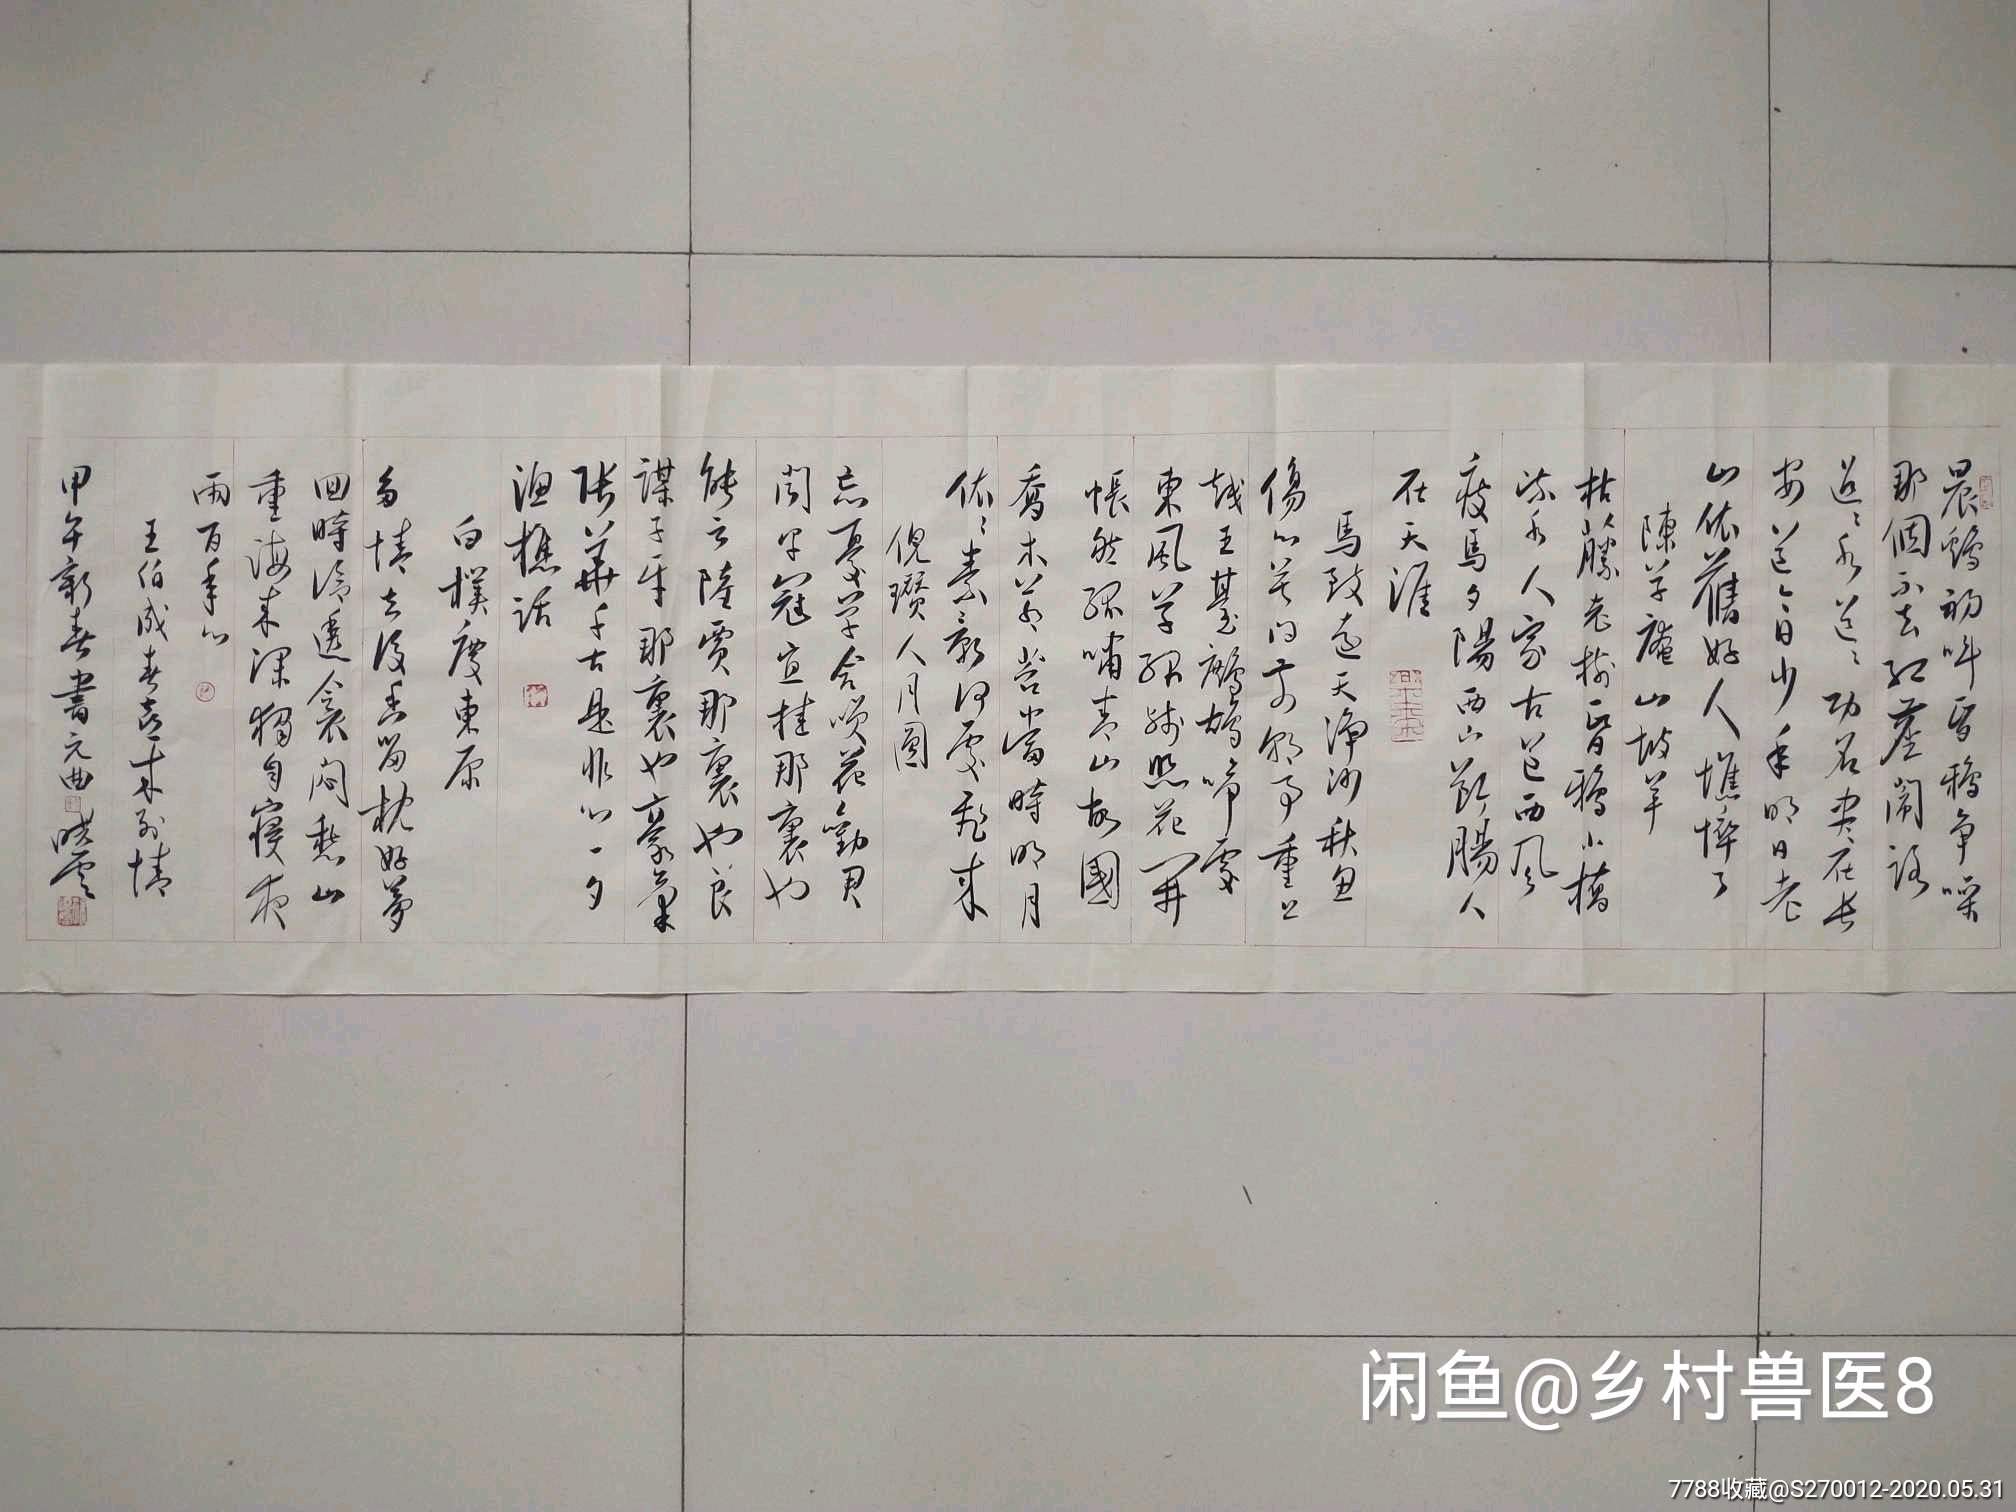 晨鷄初叫昏鴉争噪
那個不去紅塵鬧路
迢〻水迢〻功名盡在長
安道今日少年明日老
山依舊好人憔悴了
陳草庵山坡羊
枯藤老樹昏鴉小橋
流水人家古道西風
瘦馬夕陽西下斷腸人
在天涯
馬致遠天淨沙秋思
傷心莫問前朝事重上
越王臺鷓鴣啼處
東風草緑殘照花開
悵然孤嘯青山故國
喬木蒼苔當時明月
依〻素影何處飛來
倪瓚人月圓
忘憂草含笑花勸君
聞早冠宜挂那裏也
能言陸賈那裏也良
謀子牙那裏也豪氣
張華千古是非心一夕
漁樵話
白樸慶東原
多情去後香留枕好夢
回時冷透衾悶愁山
重海來深獨自寢夜
雨百年心
王伯成春從天上來別情
甲午新春書元曲
闲鱼@乡村兽医8
7788收藏@S270012-2020.05.31